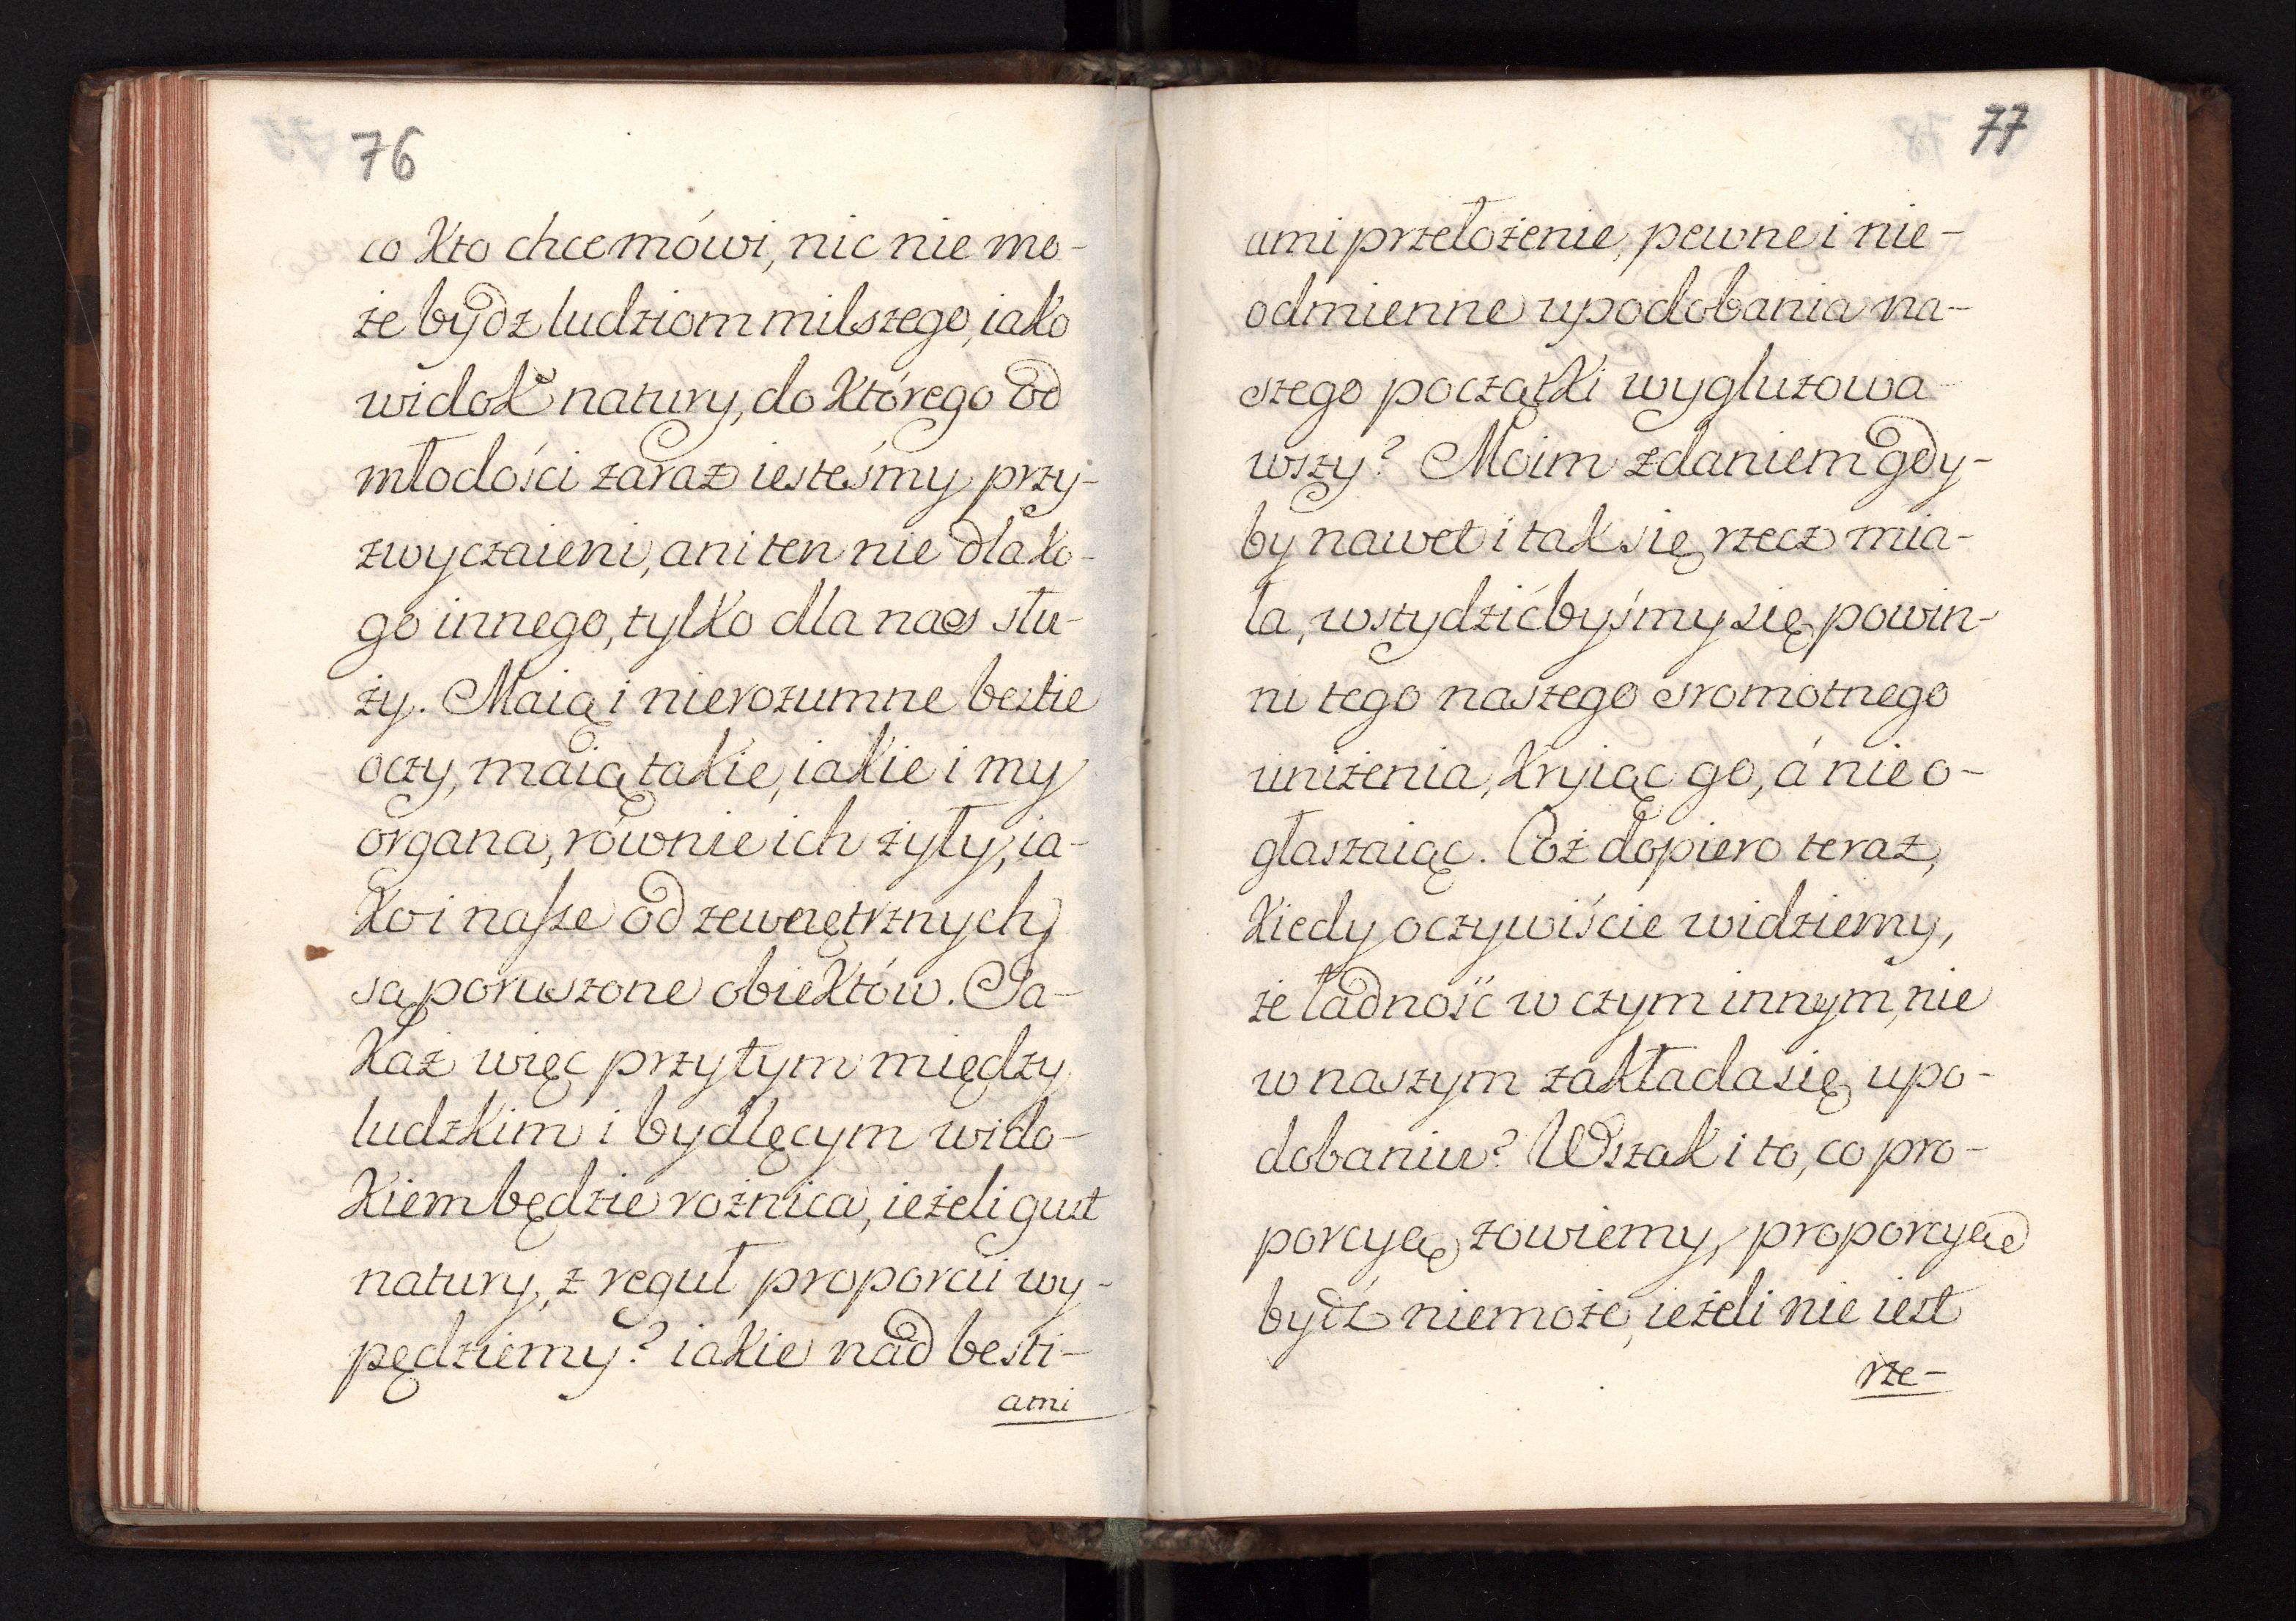 76
co kto chce mówi, nic nie mo-
że bydz ludziom milszego, iako
widok natury, do którego od
młodości zaraz iesteśmy przy-
zwyczaieni, ani ten nie dla ko-
go innego, tylko dla nas słu-
ży. Maią i nierozumne bestie
oczy, maią takie, iakie i my
organa, równie ich żyły, ia-
ko i nasze od zewnętrznych
są poruszone obiektów. Ja-
każ więc przytym między
ludzkim i bydlęcym wido-
kiem będzie rożnica, ieżeli gust
natury, z reguł proporcii wy-
pędziemy? iakie nad besti-
ami
77
ami przełożenie, pewne i nie-
odmienne upodobania na-
szego początki wygluzowa-
wszy? Moim zdaniem gdy-
by nawet i tak się rzecz mia-
ła, wstydzićbyśmy się powin-
ni tego naszego sromotnego
uniżenia, kryiąc go, á nie o-
głaszaiąc. Coż dopiero teraz,
kiedy oczywiście widziemy,
że ładność w czym innym, nie
w naszym zakłada się upo-
dobaniu? Wszak i to, co pro-
porcyą zowiemy, proporcyą
bydź niemoże, ieżeli nie iest
rze-